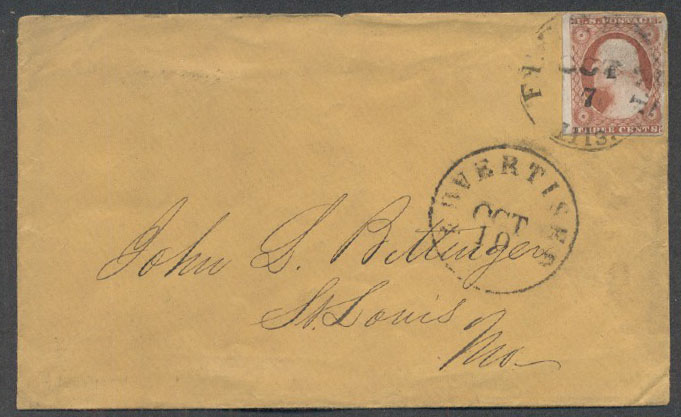 U.S. POSTAGE
OCT
7
THREE CENTS
ADVERTISED
OCT
10
John L. Bittinger
St. Louis
Mo.